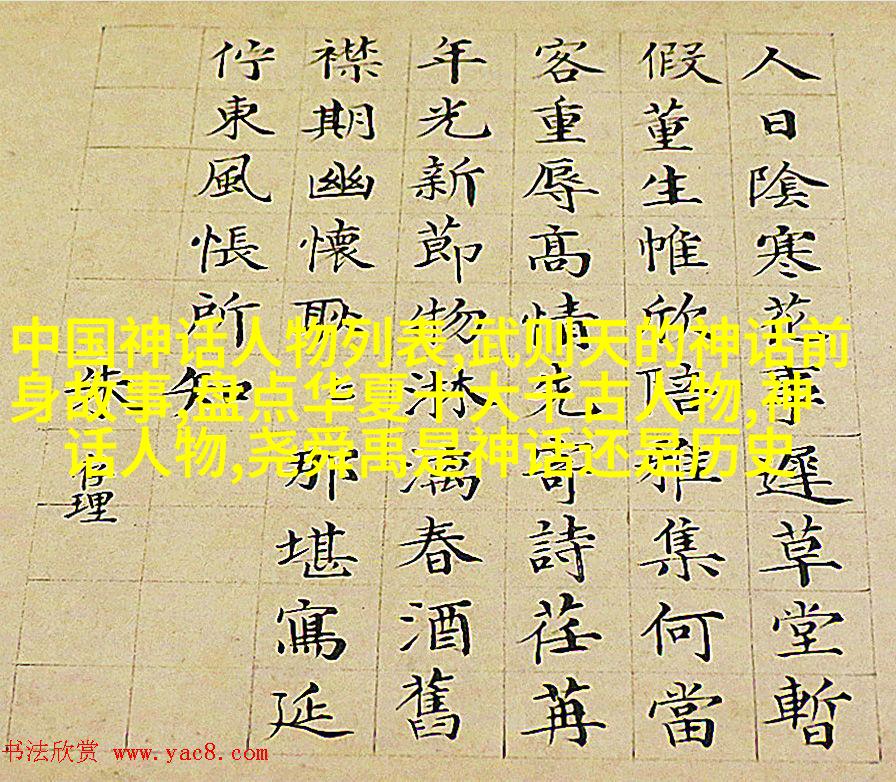 人日陰寒花事遲草堂暫
假董生帷欣陪雅集何當
客重辱高情寄詩荏苒
年光新節物淋漓春酒舊
襟期幽懷耿耿那堪寫延
佇東風悵所知
中国神话人物列表,武则天的神话前
身故事,盘点华夏十大千古人物,神
话人物,尧舜禹是神话还是历史
书法欣赏 www.yac8.com